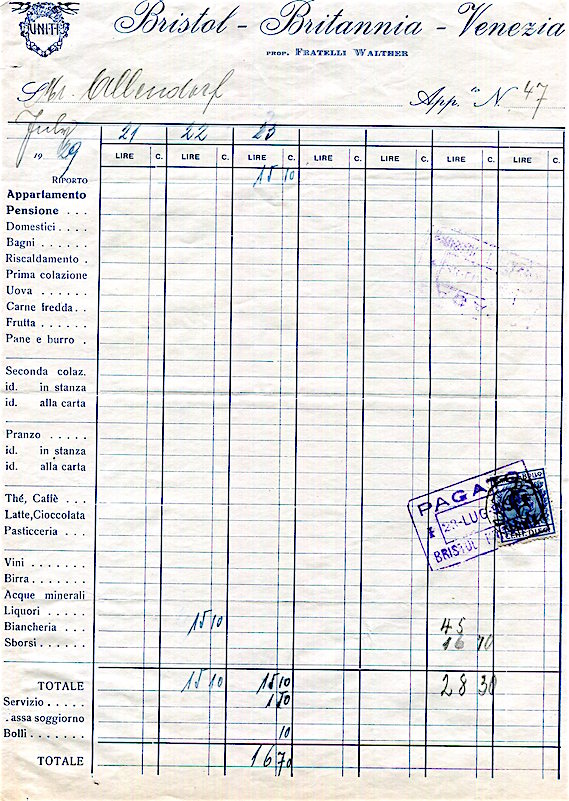 UNITI
Bristol - Britannia - Venezia
PROP. FRATELLI WALTHER
Allendorf App.to N. 47
July 21 22 23
19 29 LIRE C. LIRE C. LIRE C. LIRE C. LIRE C. LIRE C. LIRE C.
RIPORTO 15 10
Appartamento
Pensione . . .
Domestici . . . .
Bagni . . . . . .
Riscaldamento .
Prima colazione
Uova . . . . . .
Carne fredda . .
Frutta . . . . .
Pane e burro .
Seconda colaz.
id. in stanza
id. alla carta
Pranzo . . . . .
id. in stanza
id. alla carta
Thé, Caffè . . .
Latte, Cioccolata
Pasticceria . . .
PAGATO
BRISTOL
Vini . . . . . .
Birra . . . . . .
Acque minerali
Liquori . . . . .
Biancheria . . . 15 10 45
Sborsi . . . . . . 16 70
TOTALE 15 10 15 10 28 30
Servizio . . . . . 1 50
.assa soggiorno
Bolli . . . . . . . 10
TOTALE 16 70